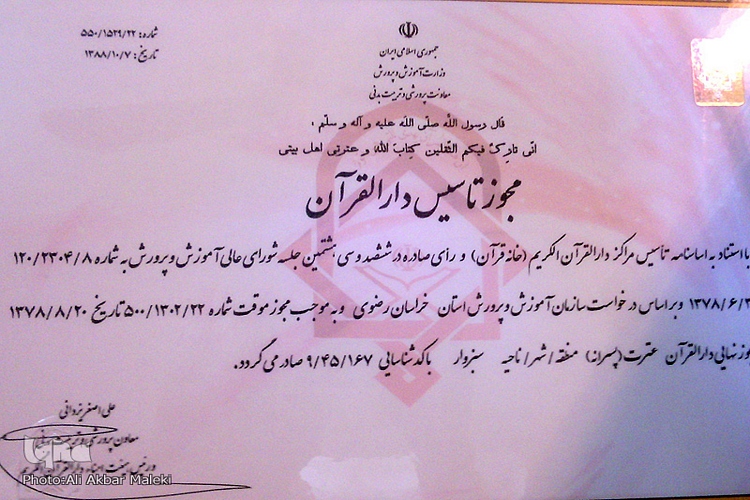 شماره: ۵۵۰/۱۵۲۹/۲۲
تاریخ: ۱۳۸۸/۱۰/۷
جمهوری اسلامی ایران
وزارت آموزش و پرورش
معاونت پرورشی و تربیت بدنی
قال رسول الله صلی الله علیه و آله و سلم :
انی تارک فیکم الثقلین کتاب الله و عترتی اهل بیتی
مجوز تاسیس دارالقرآن
با استناد به اساسنامه تأسیس مراکز دارالقرآن الکریم (خانه قرآن) و رأی صادره در ششصد و سی و هشتمین جلسه شورای عالی آموزش و پرورش به شماره ۱۲۰/۲۳۰۴/۸
۱۳۷۸/۶/ و بر اساس درخواست سازمان آموزش و پرورش استان خراسان رضوی و به موجب مجوز موقت شماره ۵۰۰/۱۳۰۲/۲۲ تاریخ ۱۳۷۸/۸/۲۰
نهایی دارالقرآن عترت (پسرانه) منطقه / شهر / ناحیه سبزوار با کد شناسایی ۹/۴۵/۱۶۷ صادر می گردد.
علی اصغر یزدانی
معاون پرورشی و تربیت بدنی
و رئیس هیئت امناء دارالقرآن الکریم
iqna
Photo:Ali Akbar Maleki